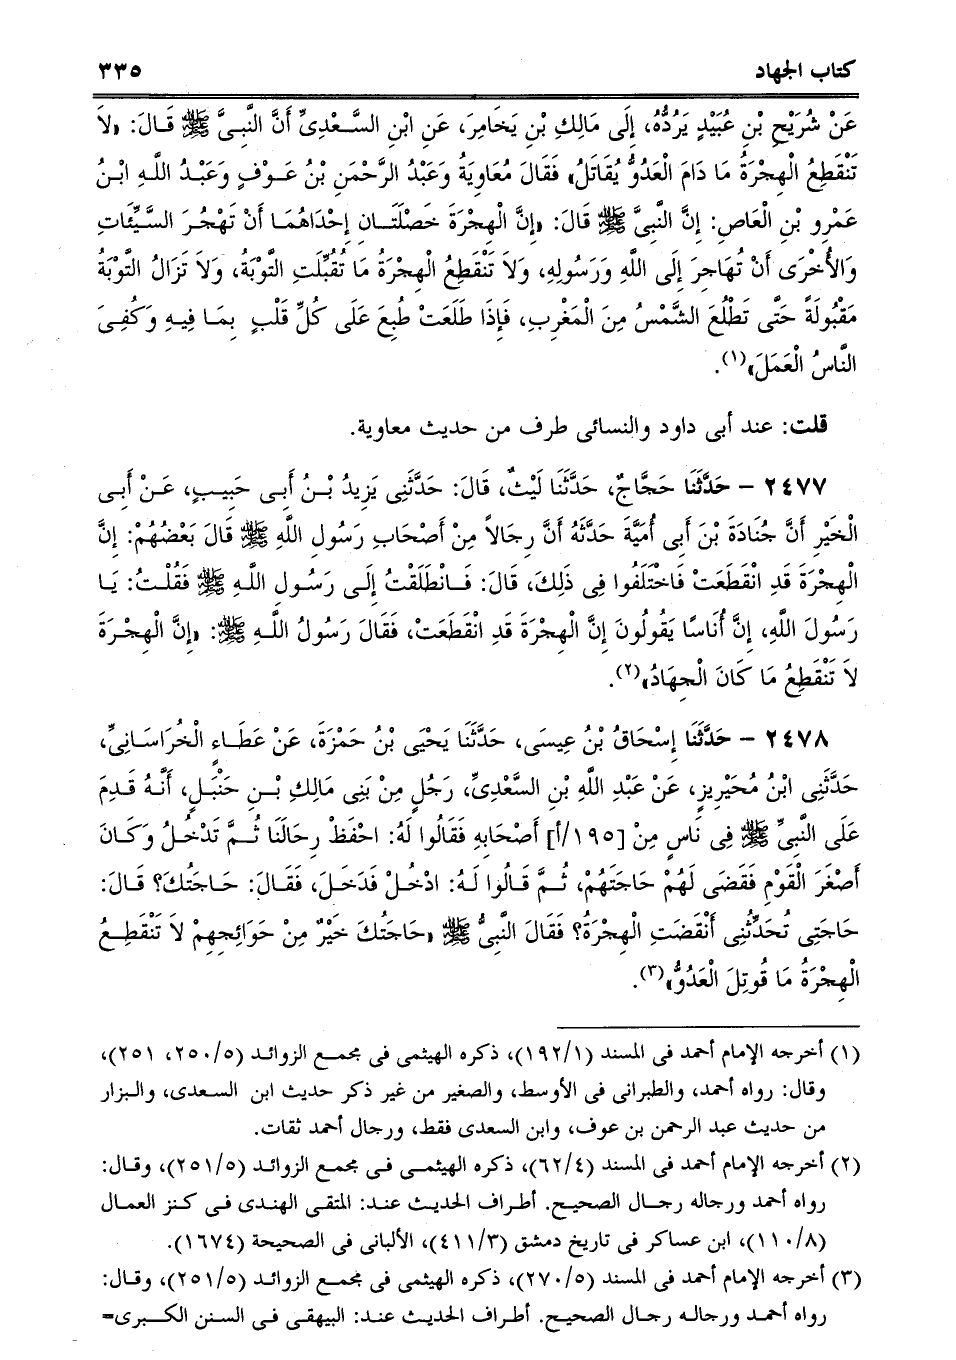 كتاب الجهاد ٣٣٥
عَنْ شُرَيْحِ بْنِ عُبَيْدٍ يَرُدُّهُ، إِلَى مَالِكِ بْنِ يَخَامِرَ، عَنِ ابْنِ السَّعْدِىِّ أَنَّ النَّبِىَّ ﷺ قَالَ: «لاَ
تَنْقَطِعُ الْهِجْرَةُ مَا دَامَ الْعَدُوُّ يُقَاتَلُ» فَقَالَ مُعَاوِيَةُ وَعَبْدُ الرَّحْمَنِ بْنُ عَوْفٍ وَعَبْدُ اللَّهِ ابْنُ
عَمْرِو بْنِ الْعَاصِ: إِنَّ النَّبِىَّ ﷺ قَالَ: «إِنَّ الْهِجْرَةَ خَصْلَتَانِ إِحْدَاهُمَا أَنْ تَهْجُرَ السَّيِّئَاتِ
وَالأُخْرَى أَنْ تُهَاجِرَ إِلَى اللَّهِ وَرَسُولِهِ، وَلاَ تَنْقَطِعُ الْهِجْرَةُ مَا تُقُبِّلَتِ التَّوْبَةُ، وَلاَ تَزَالُ التَّوْبَةُ
مَقْبُولَةً حَتَّى تَطْلُعَ الشَّمْسُ مِنَ الْمَغْرِبِ، فَإِذَا طَلَعَتْ طُبِعَ عَلَى كُلِّ قَلْبٍ بِمَا فِيهِ وَكُفِىَ
النَّاسُ الْعَمَلَ»(١).
قلت: عند أبى داود والنسائى طرف من حديث معاوية.
٢٤٧٧ - حَدَّثَنَا حَجَّاجٌ، حَدَّثَنَا لَيْثٌ، قَالَ: حَدَّثَنِى يَزِيدُ بْنُ أَبِى حَبِيبٍ، عَنْ أَبِى
الْخَيْرِ أَنَّ جُنَادَةَ بْنَ أَبِى أُمَيَّةَ حَدَّثَهُ أَنَّ رِجَالاً مِنْ أَصْحَابِ رَسُولِ اللَّهِ ﷺ قَالَ بَعْضُهُمْ: إِنَّ
الْهِجْرَةَ قَدِ انْقَطَعَتْ فَاخْتَلَفُوا فِى ذَلِكَ، قَالَ: فَانْطَلَقْتُ إِلَى رَسُولِ اللَّهِ ﷺ فَقُلْتُ: يَا
رَسُولَ اللَّهِ، إِنَّ أُنَاسًا يَقُولُونَ إِنَّ الْهِجْرَةَ قَدِ انْقَطَعَتْ، فَقَالَ رَسُولُ اللَّهِ ﷺ: «إِنَّ الْهِجْرَةَ
لاَ تَنْقَطِعُ مَا كَانَ الْجِهَادُ»(٢).
٢٤٧٨ - حَدَّثَنَا إِسْحَاقُ بْنُ عِيسَى، حَدَّثَنَا يَحْيَى بْنُ حَمْزَةَ، عَنْ عَطَاءٍ الْخُرَاسَانِىِّ،
حَدَّثَنِى ابْنُ مُحَيْرِيزٍ، عَنْ عَبْدِ اللَّهِ بْنِ السَّعْدِىِّ، رَجُلٍ مِنْ بَنِى مَالِكِ بْنِ حَنْبَلٍ، أَنَّهُ قَدِمَ
عَلَى النَّبِىِّ ﷺ فِى نَاسٍ مِنْ [١٩٥/أ] أَصْحَابِهِ فَقَالُوا لَهُ: احْفَظْ رِحَالَنَا ثُمَّ تَدْخُلُ وَكَانَ
أَصْغَرَ الْقَوْمِ فَقَضَى لَهُمْ حَاجَتَهُمْ، ثُمَّ قَالُوا لَهُ: ادْخُلْ فَدَخَلَ، فَقَالَ: حَاجَتُكَ؟ قَالَ:
حَاجَتِى تُحَدِّثُنِى أَنْقَضَتِ الْهِجْرَةُ؟ فَقَالَ النَّبِىُّ ﷺ «حَاجَتُكَ خَيْرٌ مِنْ حَوَائِجِهِمْ لاَ تَنْقَطِعُ
الْهِجْرَةُ مَا قُوتِلَ الْعَدُوُّ»(٣).
(١) أخرجه الإمام أحمد فى المسند (١٩٢/١)، ذكره الهيثمى فى مجمع الزوائد (٢٥٠/٥، ٢٥١)،
وقال: رواه أحمد، والطبرانى فى الأوسط، والصغير من غير ذكر حديث ابن السعدى، والبزار
من حديث عبد الرحمن بن عوف، وابن السعدى فقط، ورجال أحمد ثقات.
(٢) أخرجه الإمام أحمد فى المسند (٦٢/٤)، ذكره الهيثمى فى مجمع الزوائد (٢٥١/٥)، وقال:
رواه أحمد ورجاله رجال الصحيح. أطراف الحديث عند: المتقى الهندى فى كنز العمال
(١١٠/٨)، ابن عساكر فى تاريخ دمشق (٤١١/٣)، الألبانى فى الصحيحة (١٦٧٤).
(٣) أخرجه الإمام أحمد فى المسند (٢٧٠/٥)، ذكره الهيثمى فى مجمع الزوائد (٢٥١/٥)، وقال:
رواه أحمد ورجاله رجال الصحيح. أطراف الحديث عند: البيهقى فى السنن الكبرى=